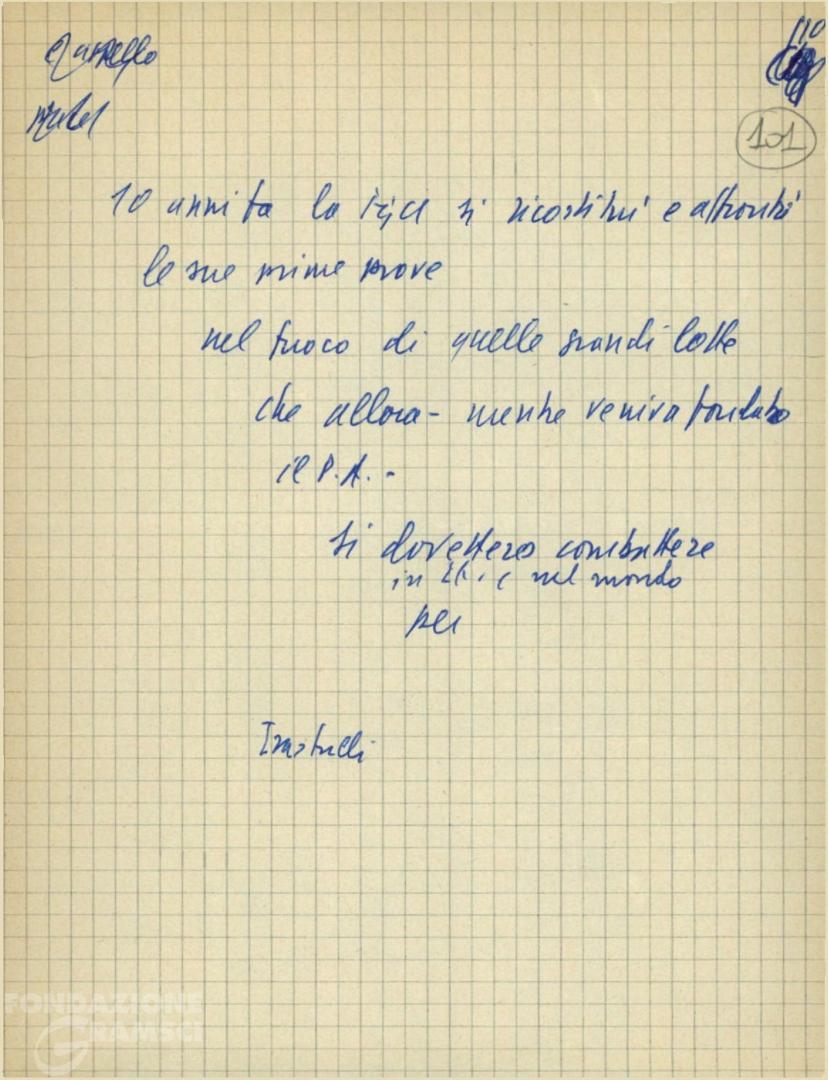 110
101
10 anni fa la FGCI si ricostituì e affrontò
le sue prime prove
nel fuoco di quelle grandi lotte
che allora - mentre veniva fondato
il P.A. -
si dovettero combattere
in It. e nel mondo
per
FONDAZIONE
GRAMSCI